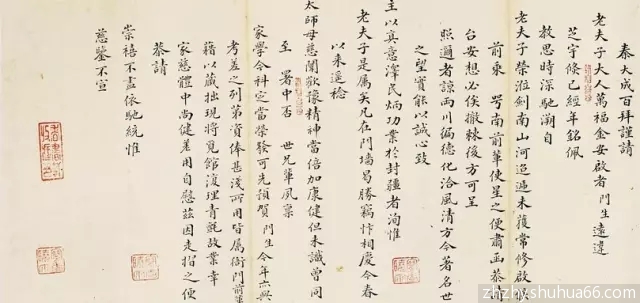 秦大成百拜謹請
老夫子大人萬福金安啟者門生遠違
芝宇條已經年銘佩
教思時深馳溯自
老夫子榮蒞劍南山河迢遞未獲常修啟
前東粵南前輩使星之便肅函恭
台安想必俟撤棘後方可呈
照過者諒兩川徧德化洽風清方令著名世
之望實能以誠心致
主以真意澤民炳功業於封疆者洵惟
老夫子是屬矣凡在門墻曷勝竊忭相慶今春
以來遥稔
太師母慈闈歡豫精神當倍加康健但未識曾同
至署中否世兄輩夙稟
家學今科定當榮發可先預賀門生今年六與
考差之列第資俸甚淺所用皆属衙門前輩
藉以藏拙現將覓館復理青氈故業幸
家慈體中尚健差用自慰茲因走摺之便
恭請
崇禧不盡依馳統惟
慈鑒不宣
zhzhyshuhua66.com